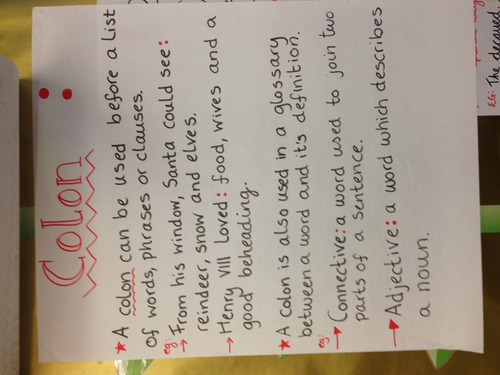 Colon :
★ A colon can be used before a list
of words, phrases or clauses.
eg:
→ From his window, Santa could see:
reindeer, snow and elves.
→ Henry VIII loved: food, wives and a
good beheading.
★ A colon is also used in a glossary
between a word and it's definition.
eg:
→ Connective: a word used to join two
parts of a sentence.
→ Adjective: a word which describes
a noun.
EG: The decayed,